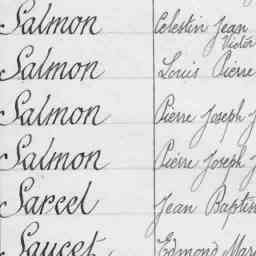 Salmon Celestin Jean
Victor
Salmon Louis Pierre
Salmon Pierre Joseph J
Salmon Pierre Joseph J
Sarcel Jean Baptis
Saucet Edmond Mar